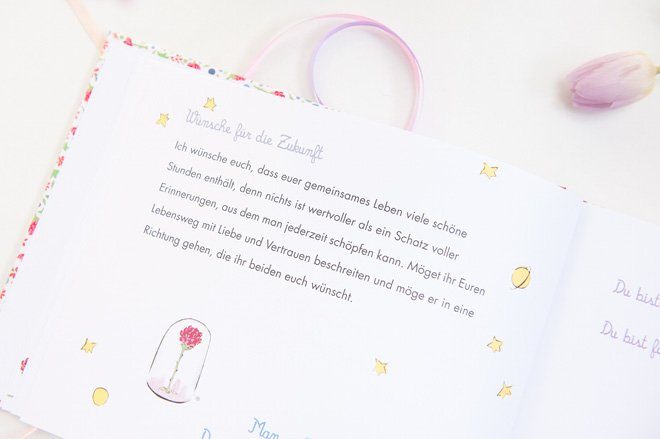 Wünsche für die Zukunft
Ich wünsche euch, dass euer gemeinsames Leben viele schöne
Stunden enthält, denn nichts ist wertvoller als ein Schatz voller
Erinnerungen, aus dem man jederzeit schöpfen kann. Möget ihr Euren
Lebensweg mit Liebe und Vertrauen beschreiten und möge er in eine
Richtung gehen, die ihr beiden euch wünscht.
Du bist
Du bist